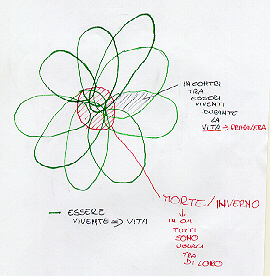 INCONTRI
TRA
ESSERI
VIVENTI
DURANTE
LA
VITA → PRIMAVERA
MORTE / INVERNO
↓
IN CUI
TUTTI
SONO
UGUALI
TRA
DI LORO
— ESSERE
VIVENTE ⇒ VITA